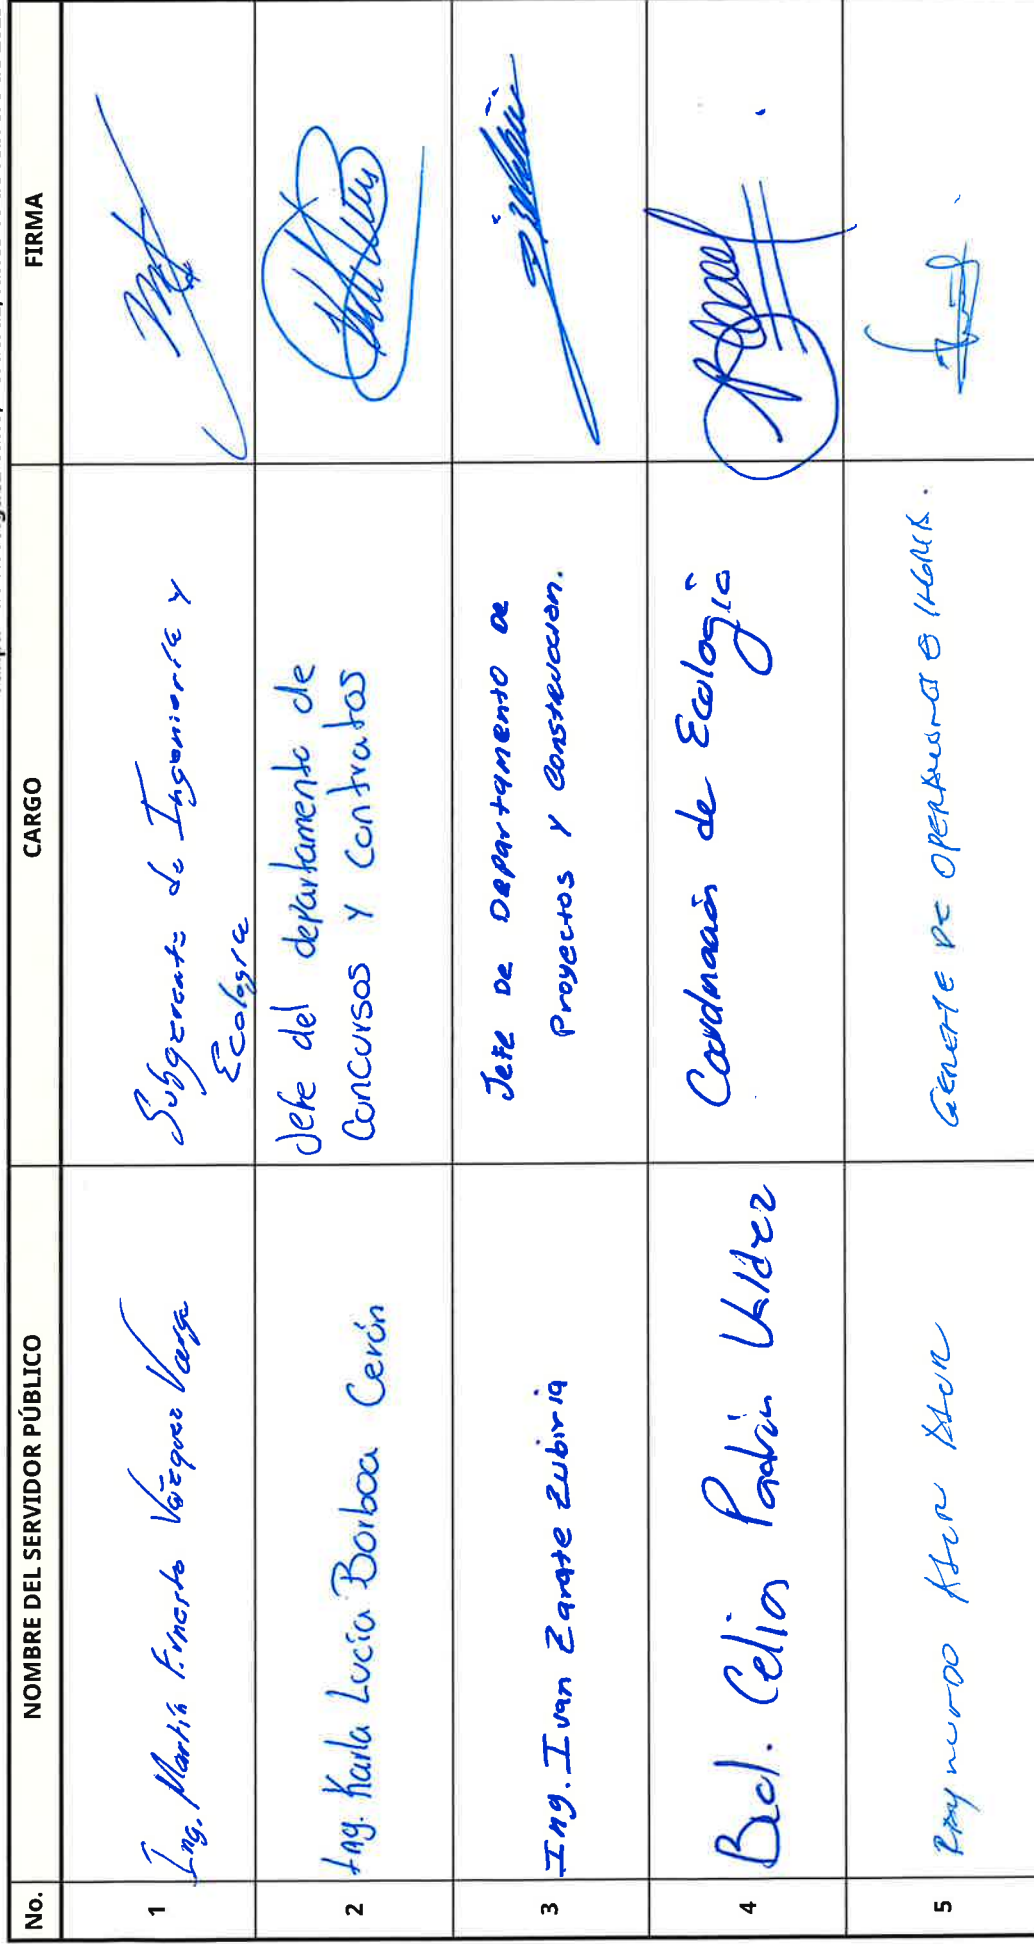 No. NOMBRE DEL SERVIDOR PÚBLICO CARGO FIRMA
1 Ing. Martín Ernesto Vázquez Vargas Subgerente de Ingeniería y
Ecología
2 Ing. Karla Lucía Borboa Cerón Jefe del departamento de
Concursos y Contratos
3 Ing. Ivan Zarate Zubiria Jefe De Departamento De
Proyectos y Construccion.
4 Celia Padrón Valdez Coordinación de Ecología
5 Raymundo Gerente de